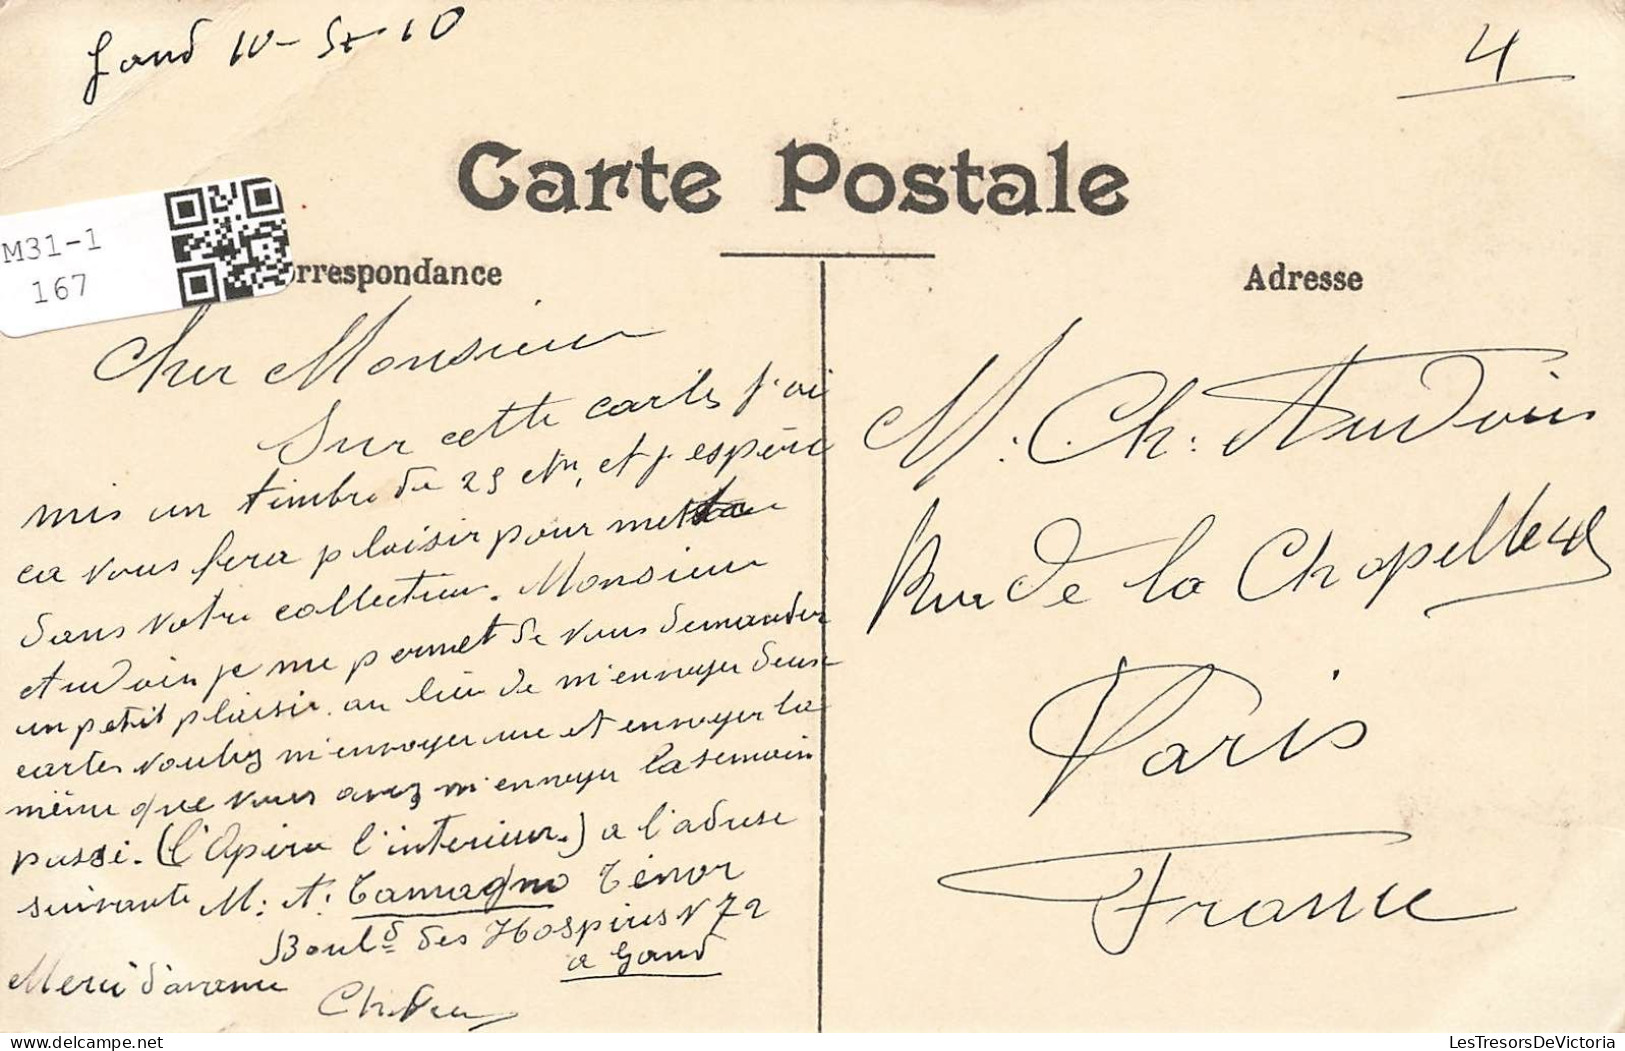 Gand 10-5-10
4
Carte Postale
M31-1
167
rrespondance
Adresse
Cher Monsieur
Sur cette cartes j'ai
mis un timbre de 25 ctm, et j'espère
ca vous fera plaisir pour mettre
dans votre collection. Monsieur
Audoin je me permet de vous demander
un petit plaisir. au lieu de m'envoyer deux
cartes voulez m'envoyer une et envoyer la
même que vous avez m'envoyer la semain
passé. (l'Opéra l'interieur.) a l'adresse
suivante M: A: Tamagno Ténor
Boul.d des Hospices N 72
a Gand
Merci d'avance
M. Ch: Audoin
Rue de la Chapelle 48
Paris
France
LesTresorsDeVictoria Delcampe.net